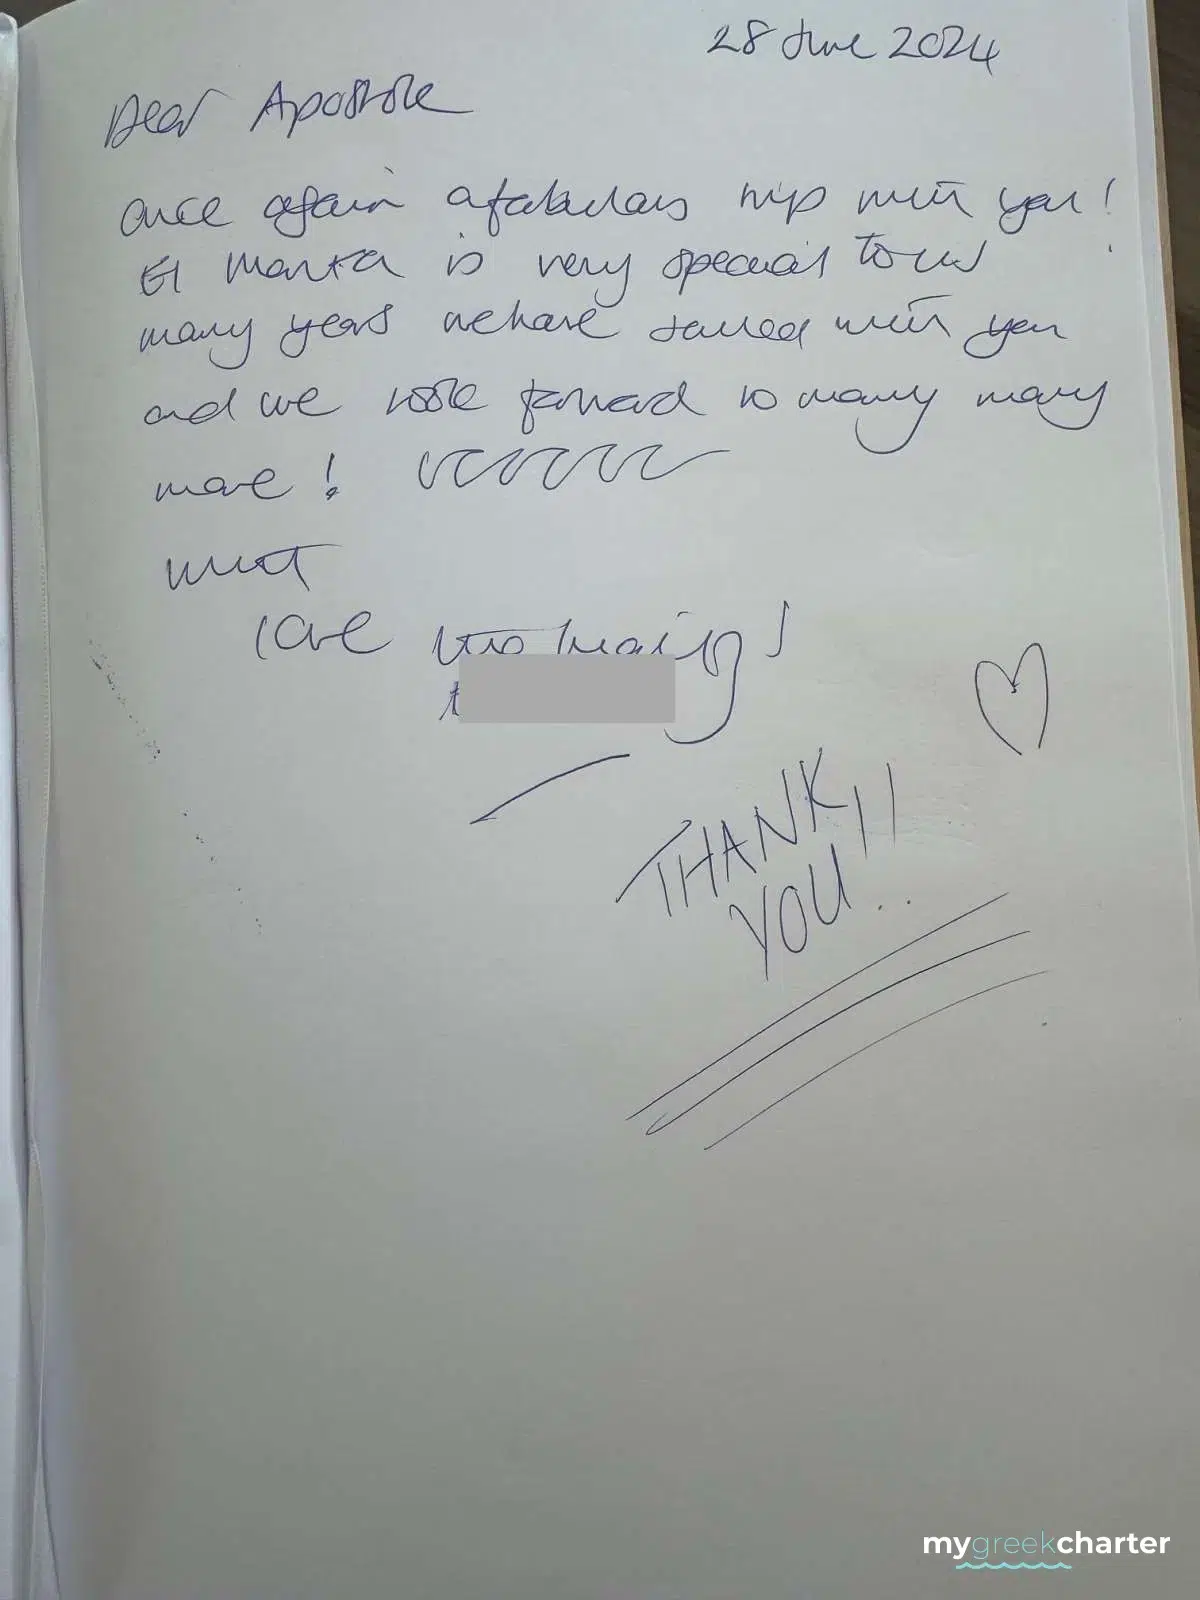 28 June 2024
Dear Apostole
once again a fabulous trip with you!
El is very special to us
many years we have sailed with you
and we look forward to many many
more!
with
love
THANK
YOU!!
mygreekcharter